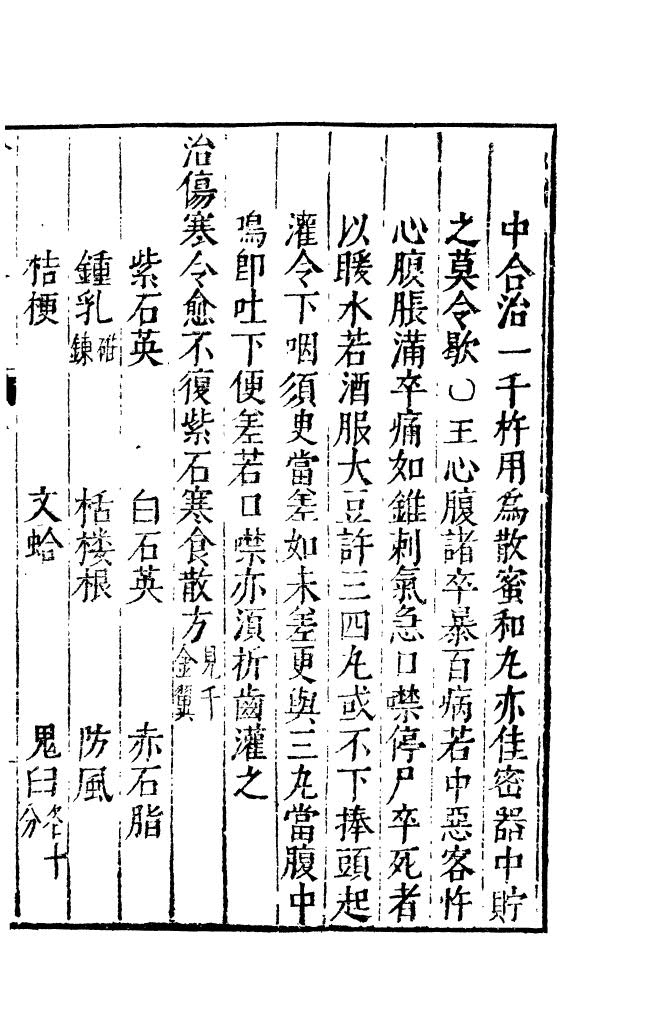 中合治一千杵用爲散蜜和丸亦佳密器中貯
之莫令歇〇王心腹諸卒暴百病若中惡客忤
心腹脹滿卒痛如錐刺氣急口噤停尸卒死者
以暖水若酒服大豆許三四丸或不下捧頭起
灌令下咽須臾當差如未差更與三丸當腹中
鳴卽吐下便差若口噤亦須折齒灌之
治傷寒令愈不復紫石寒食散方見千金翼
紫石英　白石英　赤石脂
鍾乳碓鍊　栝樓根　防風
桔梗　文蛤　鬼臼各十分